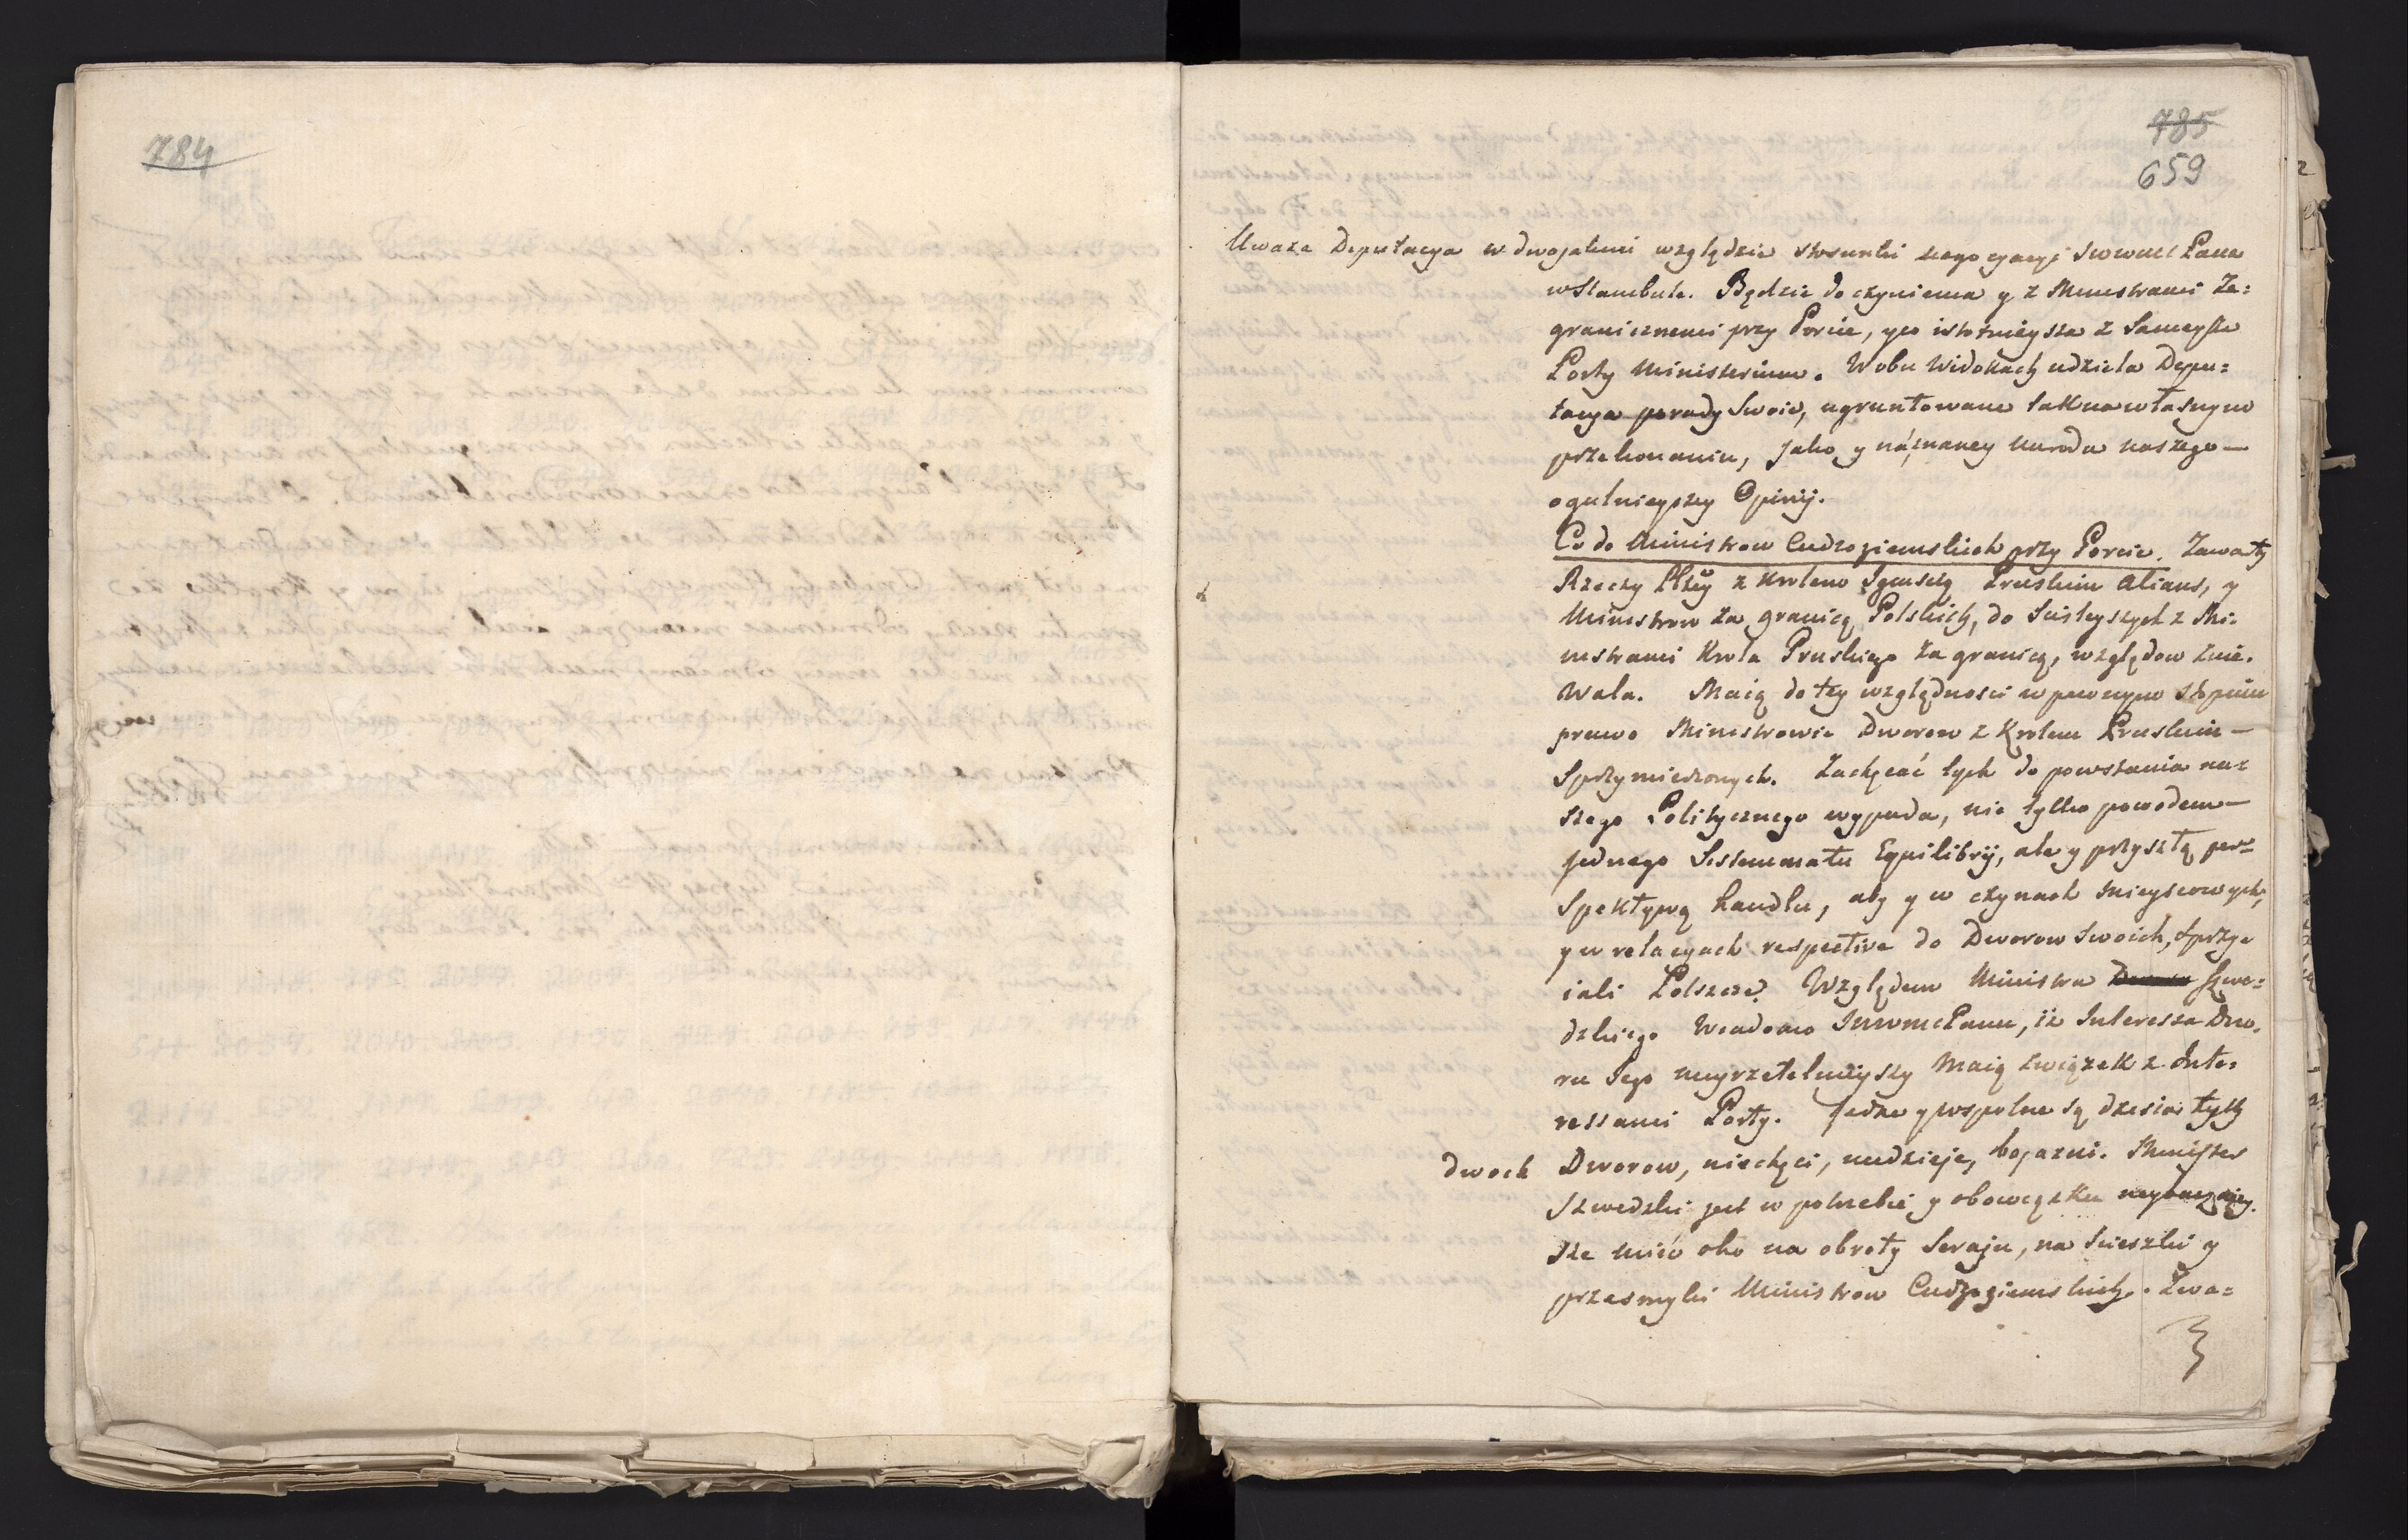 784
785
659
Uwaza Deputacya w dwojakim względzie stosunki negocyacyi JWWMC Pana
w Stambule. Będzie do czynienia y z Ministrami Za=
granicznemi przy Porcie, y co istotnieysza z Sameyże
Porty Ministerium. W obu Widokach udziela Depu=
tacya porady Swoie, ugruntowane tak na własnym
przekonaniu, jako y na znaney narodu naszego —
ogulnieyszey Opinij.
Co do Ministrow Cudzoziemskich przy Porcie. Zawarty
Rzeczy Pltey z Krolem Jgmscią Pruskim alians, y
Ministrow za granicą Polskich, do Scisleyszych z Mi=
nistrami Krola Pruskiego za granicą, względow znie=
wala. Maią do tey względnosci w pewnym stopniu
prawo Ministrowie Dworow z Krolem Pruskim —
Sprzymierzonych. Zachęcać tych do powstania na=
szego Politycznego wypada, nie tylko powodem —
jednego Sistemmatu Equilibrij, ale y przyszłą per=
spektywą handlu, aby y w czynach mieyscowych,
y w relacyach respective do Dworow swoich, sprzy=
iali Polszcze. Względem Ministra Szwe=
dzkiego Wiadomo JWWMC Panu, iż Interessa Dwo=
ru Jego nayrzetelnieyszy Maią związek z Inte=
ressami Porty. Jedne y wspolne są dzisiay tych
dwoch Dworow, niechęci, nadzieje, bojazni. Minister
Szwedzki jest w potrzebie y obowiązku naybaczniey=
sze mieć oko na obroty Seraju, na Scieszki y
przesmyki Ministrow Cudzoziemskich. Zwa=